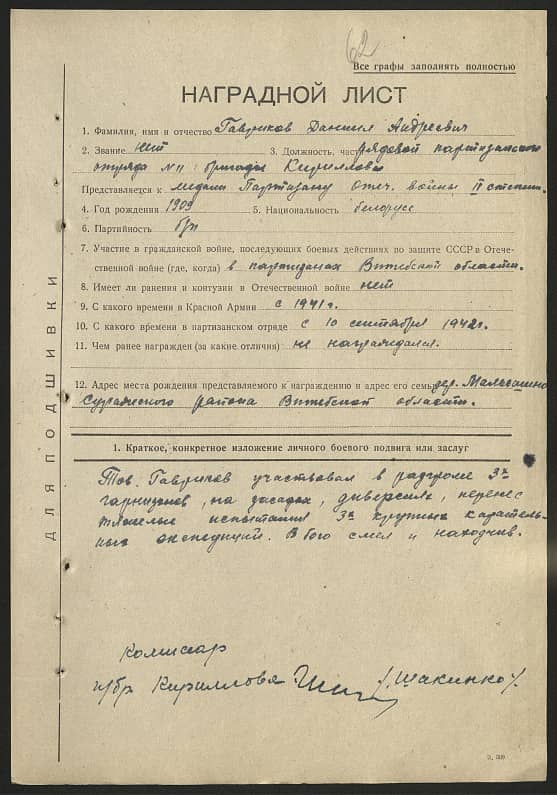 62
Все графы заполнять полностью
НАГРАДНОЙ ЛИСТ
1. Фамилия, имя и отчество Гавриков Даниил Андреевич
2. Звание нет 3. Должность, часть рядовой партизанского
отряда №11 бригады Кириллова
Представляется к медали Партизану отеч. войны II степени.
4. Год рождения 1909 5. Национальность белорус
6. Партийность б/п
7. Участие в гражданской войне, последующих боевых действиях по защите СССР в Отече-
ственной войне (где, когда) в партизанах Витебской области.
8. Имеет ли ранения и контузии в Отечественной войне нет
9. С какого времени в Красной Армии с 1941 г.
10. С какого времени в партизанском отряде с 10 сентября 1942 г.
11. Чем ранее награжден (за какие отличия) не награждался.
12. Адрес места рождения представляемого к награждению и адрес его семьи дер.
Суражского района Витебской области.
1. Краткое, конкретное изложение личного боевого подвига или заслуг
Тов. Гавриков участвовал в разгроме 3х
гарнизонов, на засадах, диверсиях, перенес
тяжелые испытания 3х крупных карательн-
ых экспедиций. В бою смел и находчив.
Комиссар
п/бр Кириллова /Шакинко/.
ДЛЯ ПОДШИВКИ